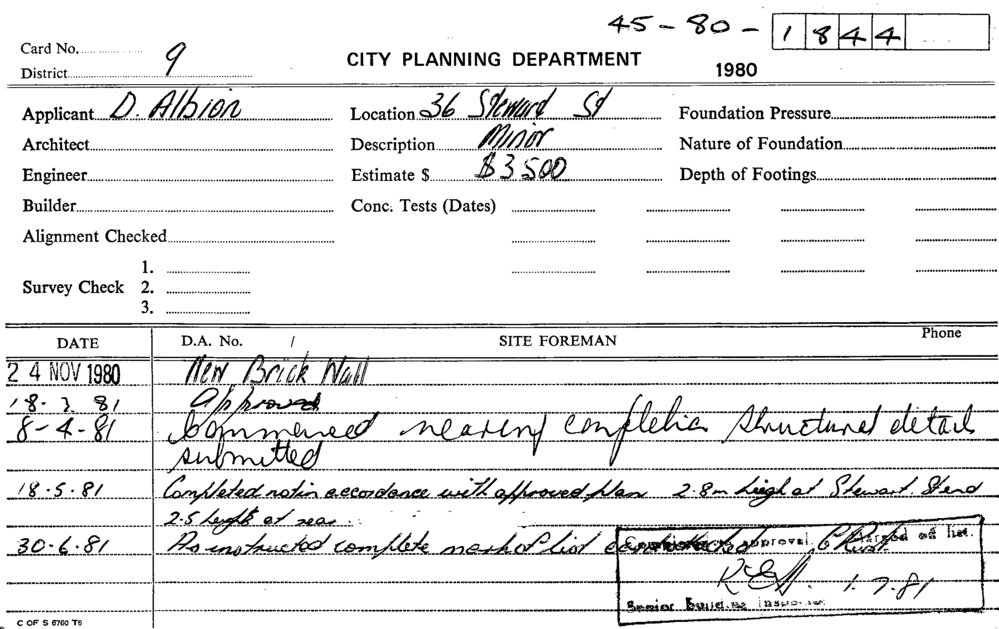 45-80-1844
Card No. 9
District
CITY PLANNING DEPARTMENT
1980
Applicant D. Albion
Location 36 Steward St
Foundation Pressure
Architect
Description Minor
Nature of Foundation
Engineer
Estimate $ $3500
Depth of Footings
Builder
Conc. Tests (Dates)
Alignment Checked
Survey Check 1.
2.
3.
DATE D.A. No. / SITE FOREMAN Phone
24 NOV 1980 New Brick Wall
18.3.81 Approved
8-4-81 Commenced nearing completion structural details
submitted
18.5.81 Completed not in accordance with approved plan 2.8m high at Stewart St end
2.5 height at rear.
30.6.81 As instructed complete mark off list
approval. off list.
1.7.81
Senior Building Inspector
C OF S 6760 T6